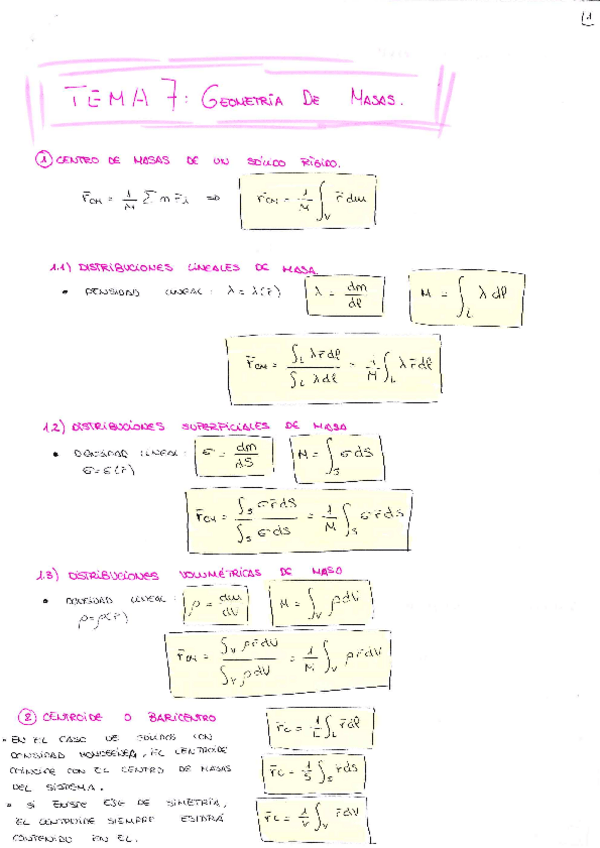 1
TEMA 7: GEOMETRÍA DE MASAS.
① CENTRO DE MASAS DE UN SÓLIDO RÍGIDO.
r̄CM = 1/M Σ m r̄i ⇒ r̄CM = 1/M ∫V r̄ dm
1.1) DISTRIBUCIONES LINEALES DE MASA
• DENSIDAD LINEAL: λ = λ(r̄) λ = dm/dl M = ∫L λ dl
r̄CM = ∫L λ r̄ dl / ∫L λ dl = 1/M ∫L λ r̄ dl
1.2) DISTRIBUCIONES SUPERFICIALES DE MASA
• DENSIDAD LINEAL: σ = dm/dS M = ∫S σ dS
σ = σ(r̄)
r̄CM = ∫S σ r̄ dS / ∫S σ dS = 1/M ∫S σ r̄ dS
1.3) DISTRIBUCIONES VOLUMÉTRICAS DE MASA
• DENSIDAD LINEAL: ρ = dm/dV M = ∫V ρ dV
ρ = ρ(r̄)
r̄CM = ∫V ρ r̄ dV / ∫V ρ dV = 1/M ∫V ρ r̄ dV
② CENTROIDE O BARICENTRO
r̄C = 1/L ∫L r̄ dl
• EN EL CASO DE SÓLIDOS CON
DENSIDAD HOMOGÉNEA, EL CENTROIDE
COINCIDE CON EL CENTRO DE MASAS
DEL SISTEMA.
r̄C = 1/S ∫S r ds
• SI EXISTE EJE DE SIMETRÍA,
EL CENTROIDE SIEMPRE ESTARÁ
CONTENIDO EN EL.
r̄C = 1/V ∫V r̄ dV